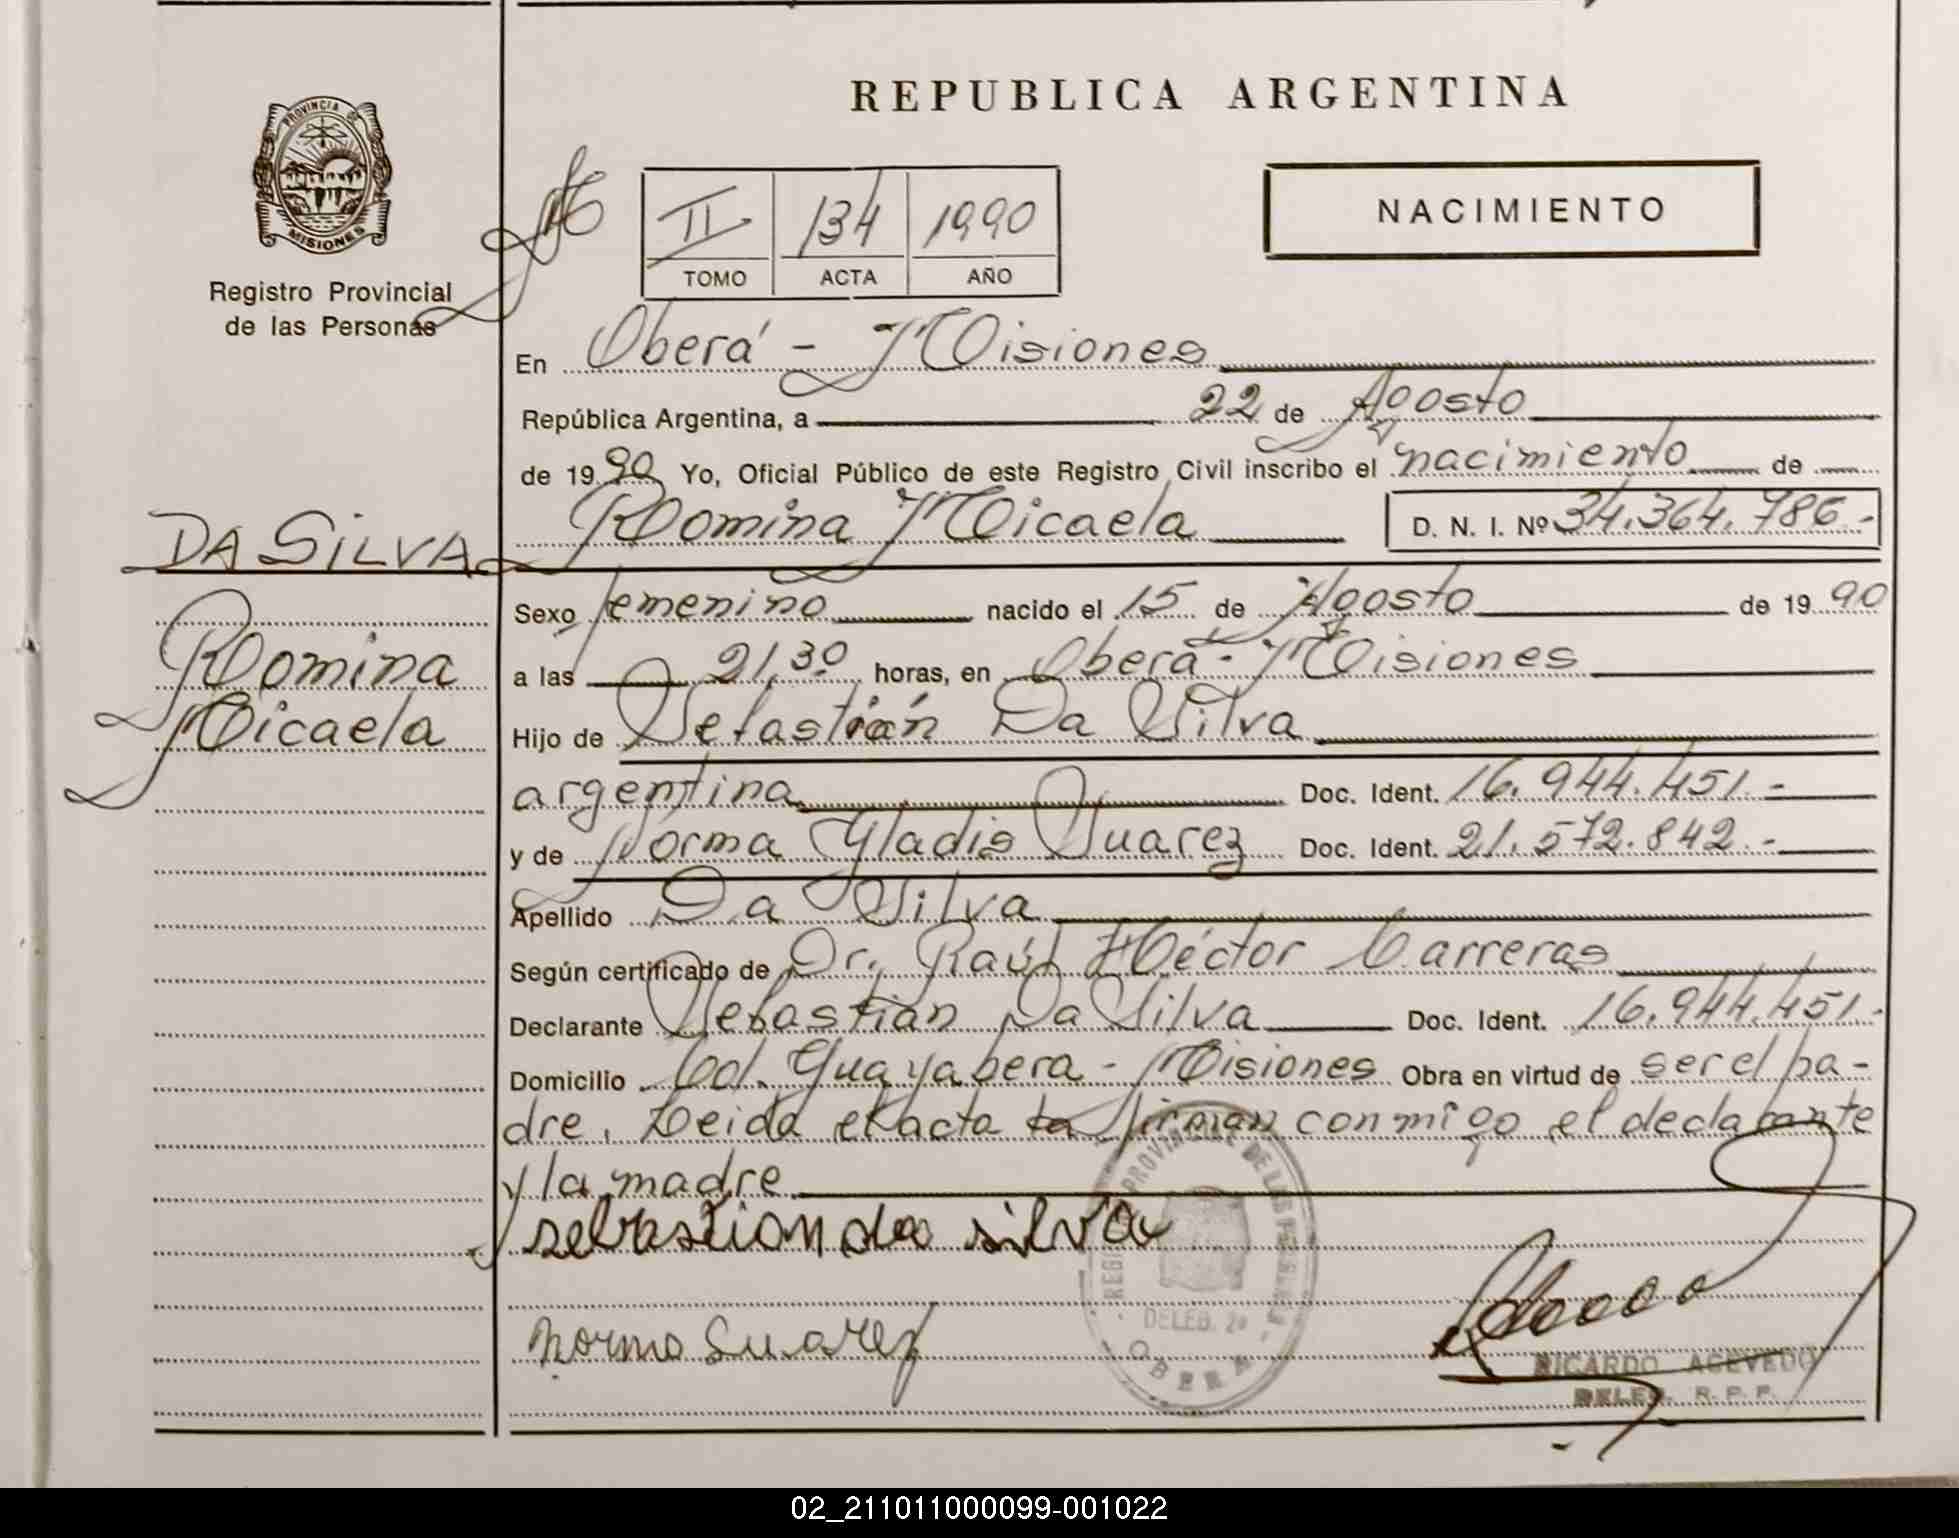 REPUBLICA ARGENTINA
PROVINCIA DE
MISIONES
Registro Provincial
de las Personas
II 134 1990
TOMO ACTA AÑO
NACIMIENTO
En Oberá - Misiones
República Argentina, a 22 de Agosto
de 1990 Yo, Oficial Público de este Registro Civil inscribo el nacimiento de
Romina Micaela D. N. I. Nº 34.364.786.-
DA SILVA
Romina
Micaela
Sexo femenino nacido el 15 de Agosto de 1990
a las 21,30 horas, en Oberá - Misiones
Hijo de Sebastián Da Silva
argentina Doc. Ident. 16.944.451.-
y de Norma Gladis Suarez Doc. Ident. 21.572.842.-
Apellido Da Silva
Según certificado de Dr. Raúl Héctor Carreras
Declarante Sebastián Da Silva Doc. Ident. 16.944.451.-
Domicilio Col. Guayabera - Misiones Obra en virtud de ser el pa-
dre. Leida el acta la firman conmigo el declarante
y la madre
sebastian da silva
norma Suarez
DELEB. 2ª
OBERA
RICARDO ACEVEDO
DELEG. R. P. P.
02_211011000099-001022